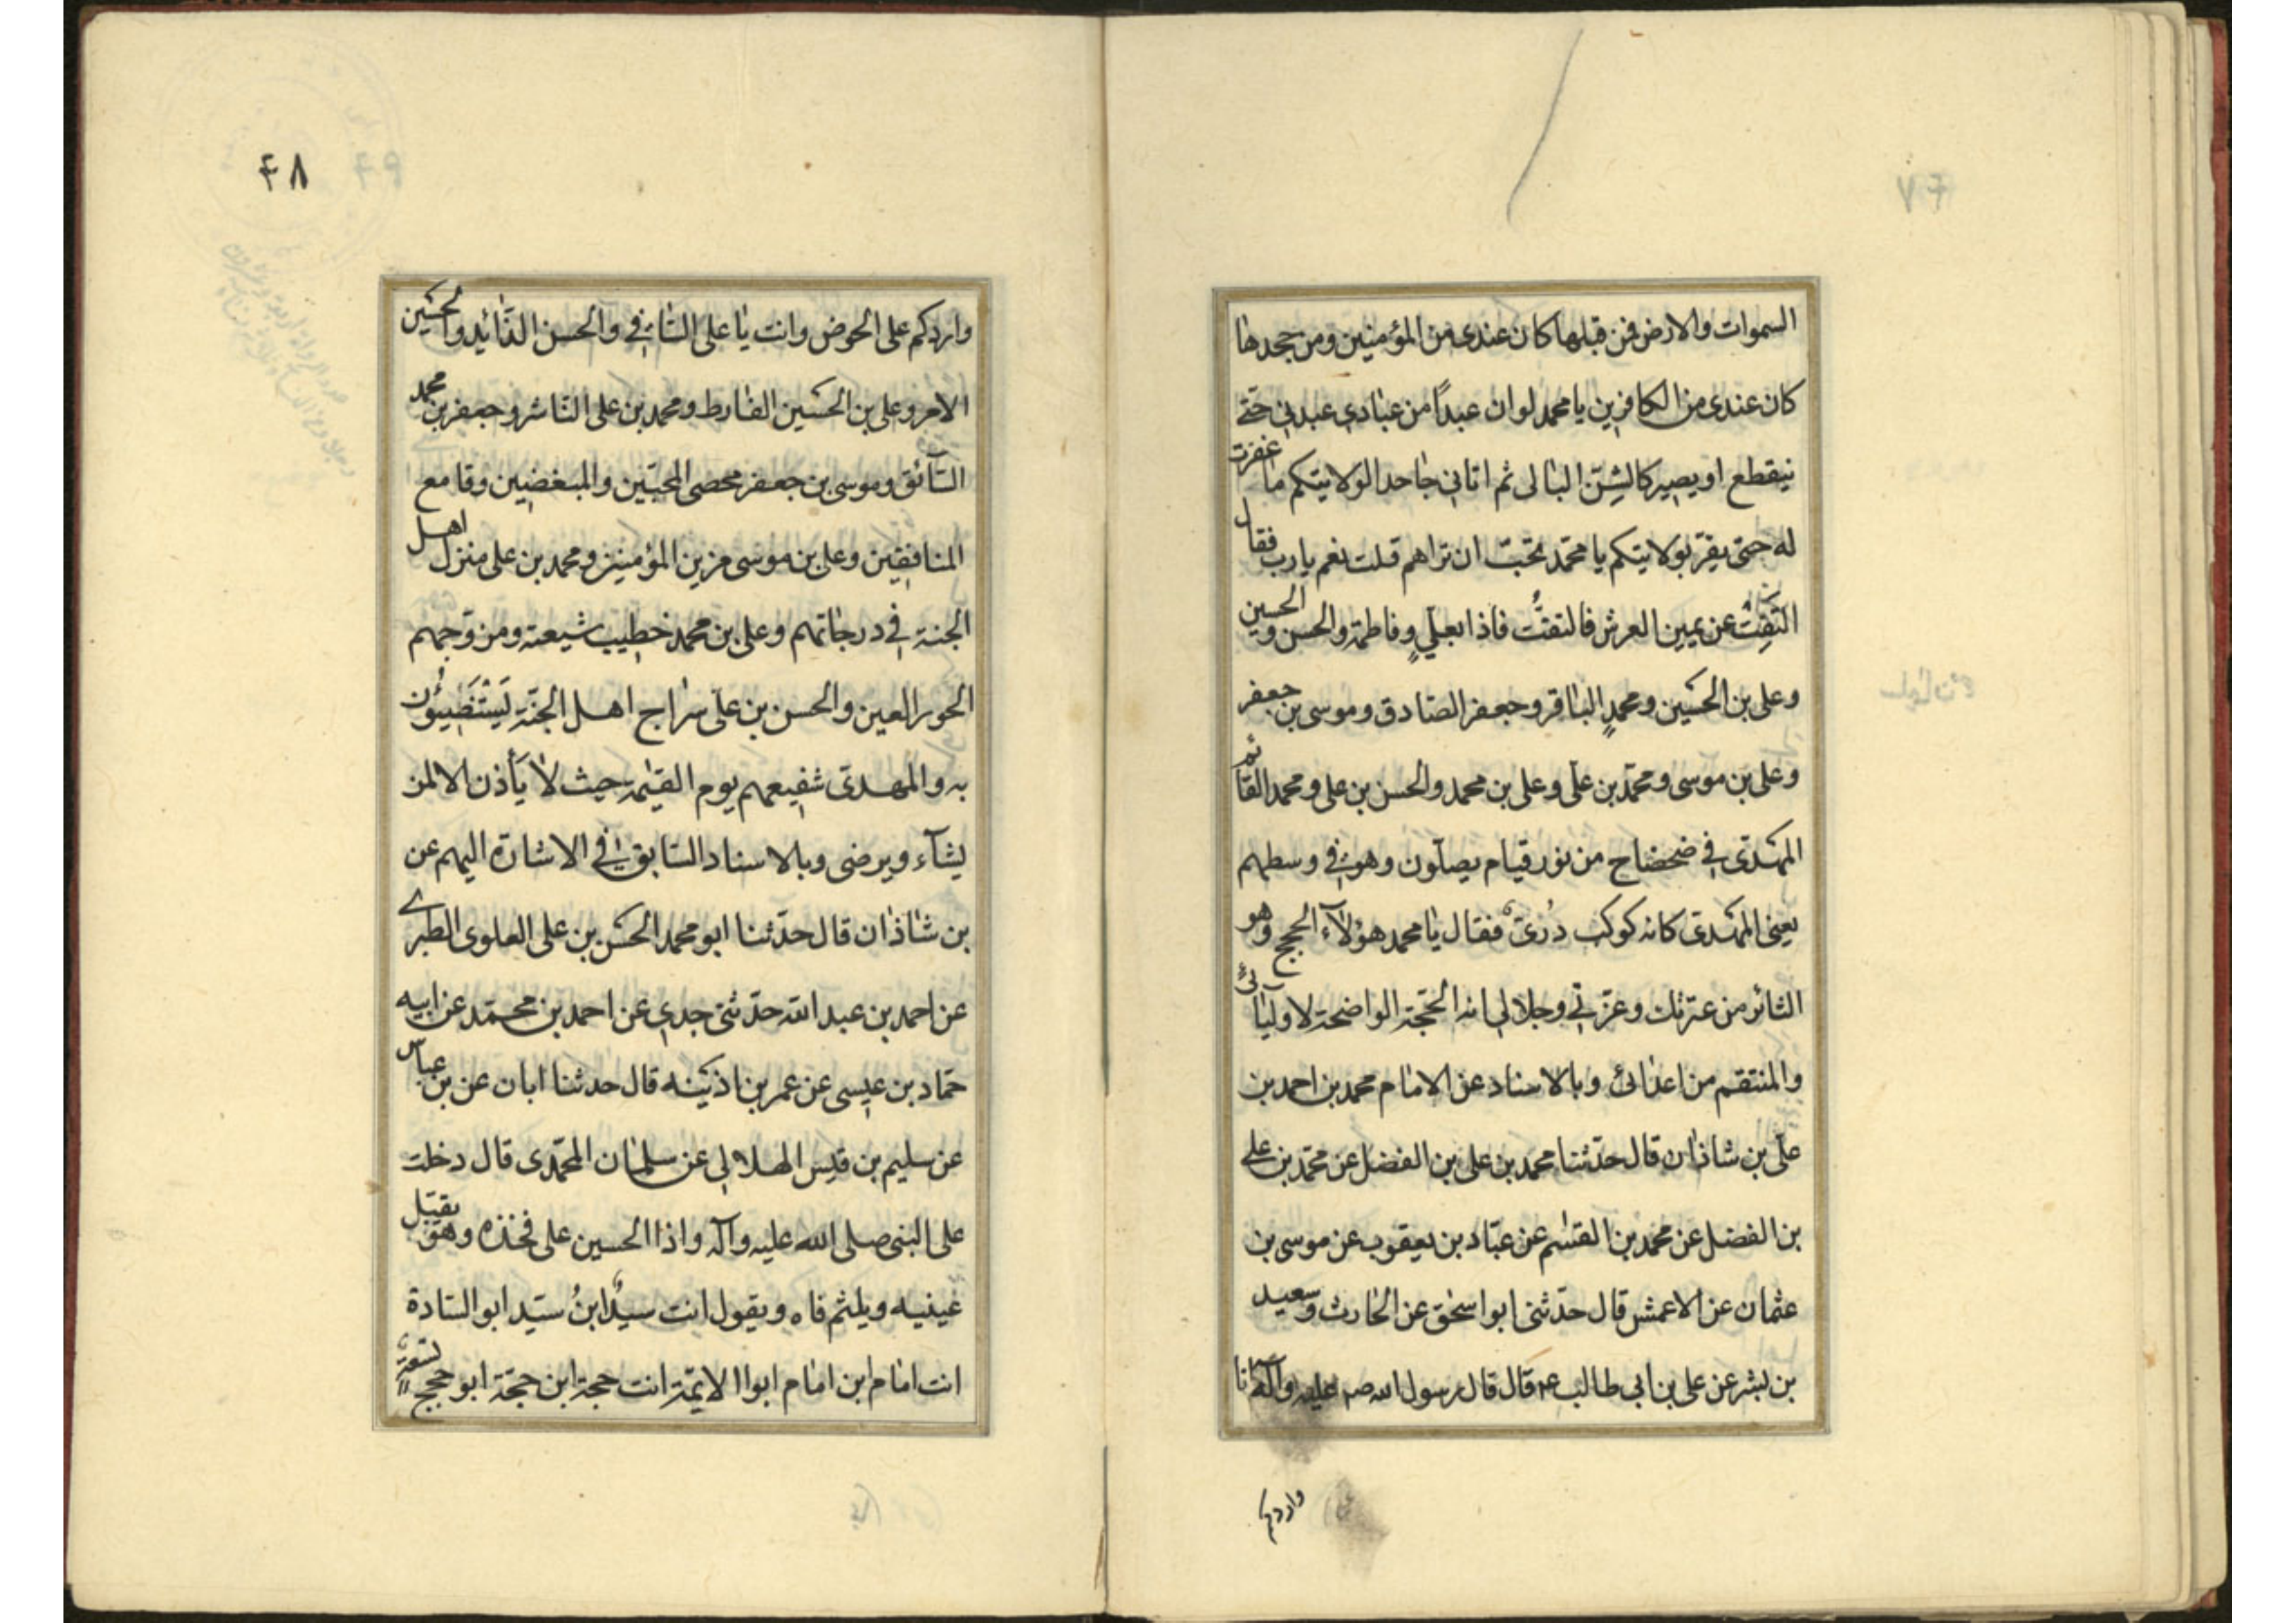 السموات والارض فمن قبلها كان عندى من المؤمنين ومن جحدها
كان عندى من الكافرين يا محمد لو ان عبداً من عبادي عبدني حتى
ينقطع او يصير كالشنّ البالى ثم اتاني جاحدا لولايتكم ما غفرت
له حتى يقرّ بولايتكم يا محمّد تحبّ ان تراهم قلت نعم يا رب فقال
التفِتْ عن يمين العرش فالتفتُّ فاذا بعليٍ وفاطمة والحسن والحسين
وعلى بن الحسين ومحمدٍ الباقر وجعفر الصادق وموسى بن جعفر
وعلى بن موسى ومحمّد بن على وعلى بن محمد والحسن بن على ومحمد القائم
المهدى في ضحضاح من نور قيام يصلّون وهو في وسطهم
يعنى المهدى كانه كوكب درّىّ فقال يا محمد هؤلآء الحجج وهو
الثائر من عترتك وعزّتي وجلالي انه الحجّة الواضحة لاوليائى
والمنتقم من اعدائى وبالاسناد عن الامام محمد بن احمد بن
على بن شاذان قال حدّثنا محمد بن على بن الفضل عن محمّد بن على
بن الفضل عن محمد بن القسم عن عبّاد بن يعقوب عن موسى بن
عثمان عن الاعمش قال حدّثنى ابو اسحق عن الحارث وسعيد
بن بشر عن على بن ابى طالب ع قال قال رسول الله صم عليه وآله انا
واردكم
۴۸
واردكم على الحوض وانت يا على الساقي والحسن الذّائد والحسين
الامر وعلى بن الحسين الفارط ومحمد بن على الناشر وجعفر بن محمد
السّائق وموسى بن جعفر محصى المحبّين والمبغضين وقامع
المنافقين وعلى بن موسى مزين المؤمنين ومحمد بن على منزل اهل
الجنة في درجاتهم وعلى بن محمد خطيب شيعته ومزوّجهم
الحور العين والحسن بن على سراج اهل الجنّة يَسْتَضيئون
به والمهدى شفيعهم يوم القيٰمة حيث لا يأذن الا لمن
يشآء ويرضى وبالاسناد السّابق في الاشارة اليهم عن
بن شاذان قال حدّثنا ابو محمد الحسن بن على العلوى الطبرى
عن احمد بن عبد الله حدّثنى جدي عن احمد بن محمّد عن ابيه
حمّاد بن عيسى عن عمر بن اذينه قال حدثنا ابان عن بن عباس
عن سليم بن قيس الهلالي عن سلمان المحمّدى قال دخلت
على النبى صلى الله عليه وآله واذا الحسين على فخذه وهو يقبّل
عينيه ويلثم فاه ويقول انت سيدٌ ابنُ سيّد ابو السادة
انت امام ابن امام ابوا الايمّة انت حجة ابن حجّة ابو حجج تسعةٍ